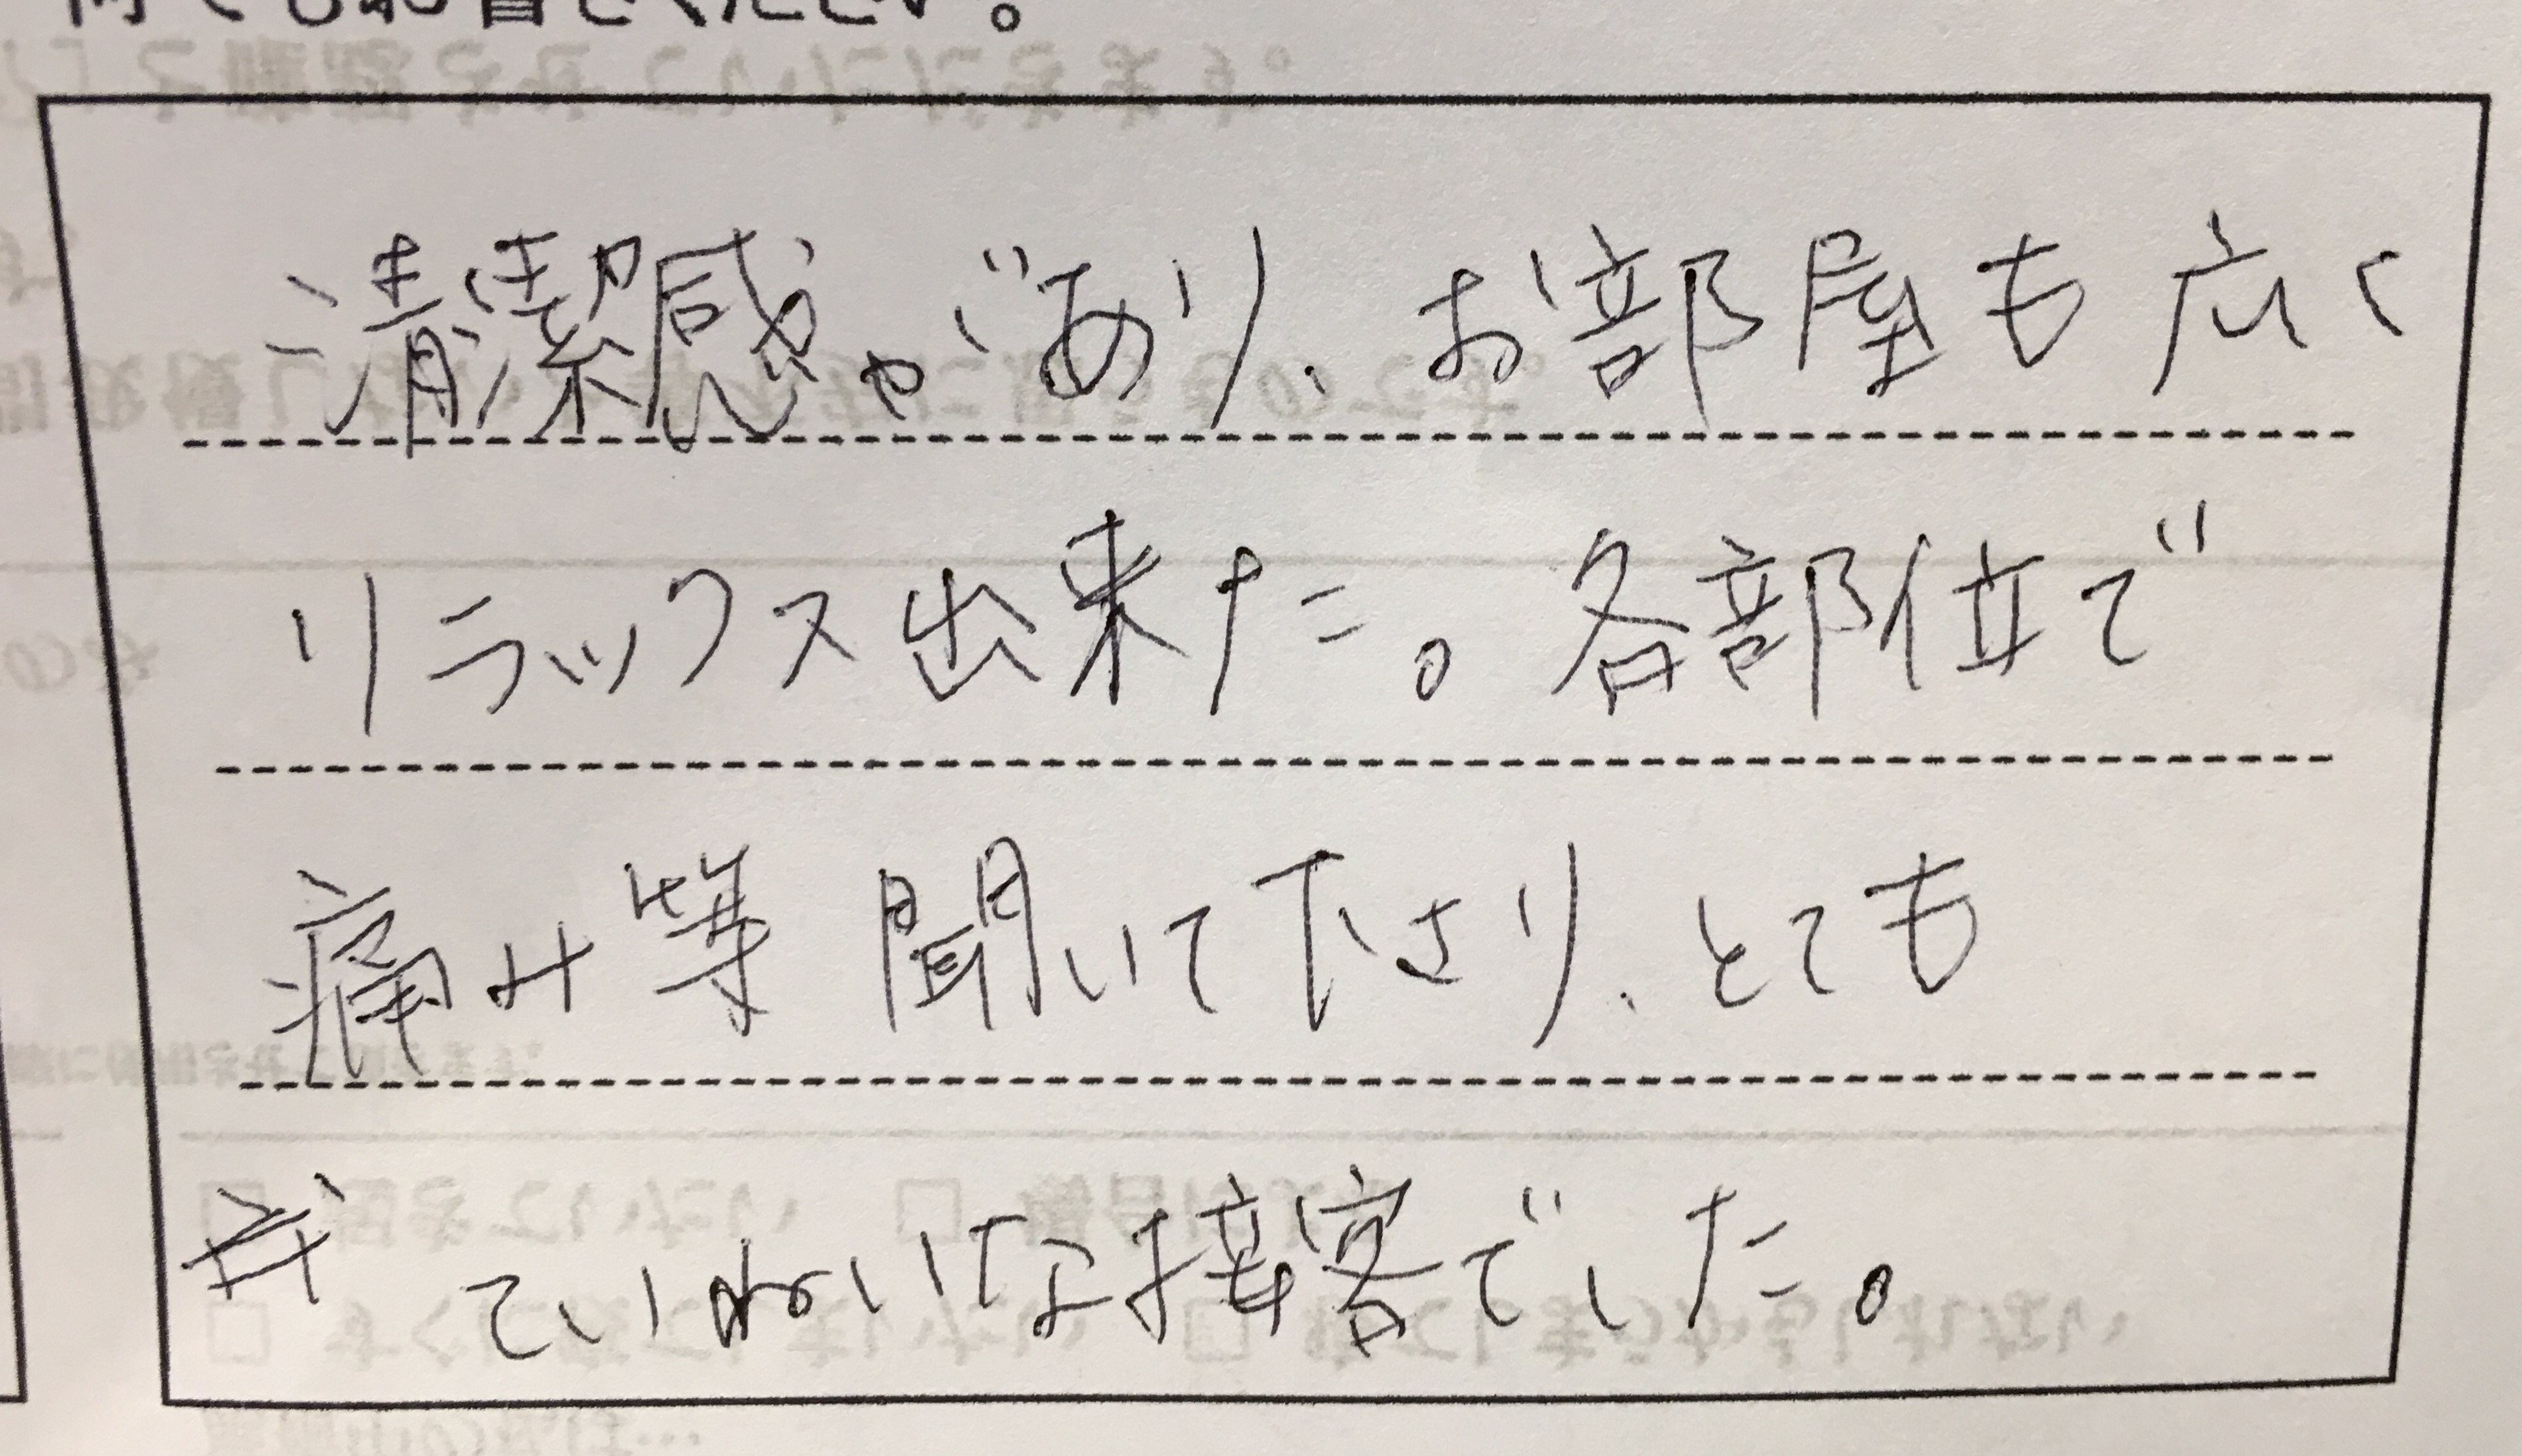 清潔感があり、お部屋も広く
リラックス出来た。各部位で
痛み等 聞いて下さり、とても
ていねいな接客でした。